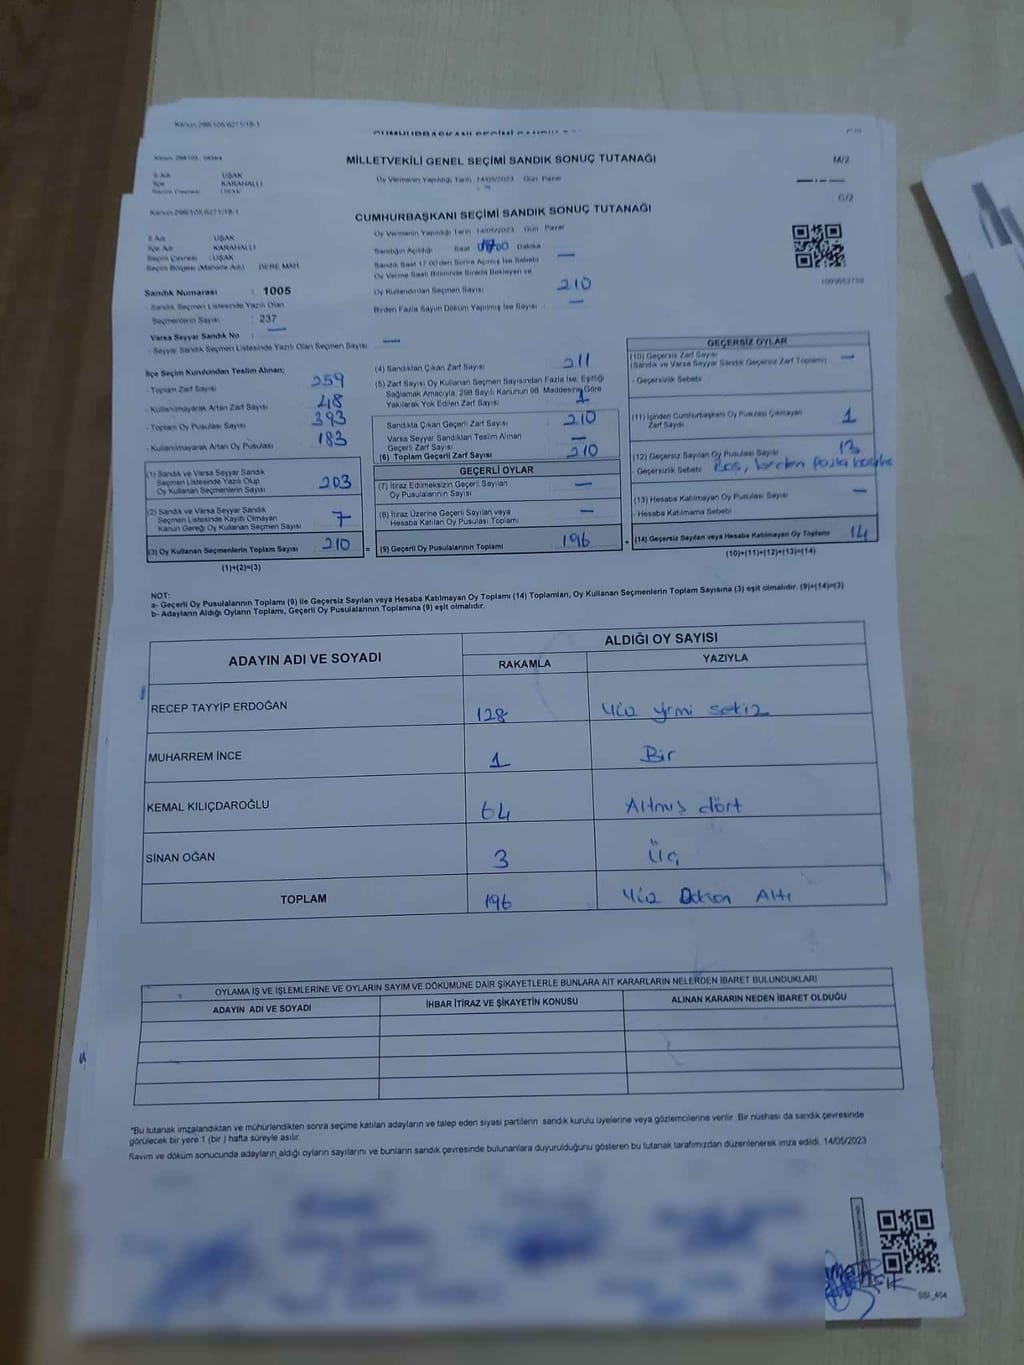 Kanun 298/105/6271/18-1
MİLLETVEKİLİ GENEL SEÇİMİ SANDIK SONUÇ TUTANAĞI
M/2
İl Adı UŞAK
İlçe KARAHALLI
Seçim Çevresi UŞAK
Oy Vermenin Yapıldığı Tarih 14/05/2023 Gün Pazar
Kanun 298/105/6271/18-1
CUMHURBAŞKANI SEÇİMİ SANDIK SONUÇ TUTANAĞI
C/2
Oy Vermenin Yapıldığı Tarih 14/05/2023 Gün Pazar
İl Adı : UŞAK
İlçe Adı : KARAHALLI
Seçim Çevresi : UŞAK
Seçim Bölgesi (Mahalle Adı) : DERE MAH.
Sandığın Açıldığı Saat 17:00 Dakika —
Sandık Saat 17:00'den Sonra Açılmış İse Sebebi
Oy Verme Saati Bitiminde Sırada Bekleyen ve
Oy Kullandırılan Seçmen Sayısı : 210
Birden Fazla Sayım Döküm Yapılmış İse Sayısı : —
Sandık Numarası : 1005
- Sandık Seçmen Listesinde Yazılı Olan
Seçmenlerin Sayısı : 237
Varsa Seyyar Sandık No : —
- Seyyar Sandık Seçmen Listesinde Yazılı Olan Seçmen Sayısı : —
İlçe Seçim Kurulundan Teslim Alınan;
- Toplam Zarf Sayısı : 259
- Kullanılmayarak Artan Zarf Sayısı : 48
- Toplam Oy Pusulası Sayısı : 393
- Kullanılmayarak Artan Oy Pusulası : 183
(1) Sandık ve Varsa Seyyar Sandık
Seçmen Listesinde Yazılı Olup
Oy Kullanan Seçmenlerin Sayısı : 203
(2) Sandık ve Varsa Seyyar Sandık
Seçmen Listesinde Kayıtlı Olmayan
Kanun Gereği Oy Kullanan Seçmen Sayısı : 7
(3) Oy Kullanan Seçmenlerin Toplam Sayısı : 210
(1)+(2)=(3)
(4) Sandıktan Çıkan Zarf Sayısı : 211
(5) Zarf Sayısı Oy Kullanan Seçmen Sayısından Fazla İse, Eşitliği
Sağlamak Amacıyla; 298 Sayılı Kanunun 98. Maddesine Göre
Yakılarak Yok Edilen Zarf Sayısı : 1
Sandıkta Çıkan Geçerli Zarf Sayısı : 210
Varsa Seyyar Sandıktan Teslim Alınan
Geçerli Zarf Sayısı : —
(6) Toplam Geçerli Zarf Sayısı : 210
GEÇERLİ OYLAR
(7) İtiraz Edilmeksizin Geçerli Sayılan
Oy Pusulalarının Sayısı : —
(8) İtiraz Üzerine Geçerli Sayılan veya
Hesaba Katılan Oy Pusulası Toplamı : —
= (9) Geçerli Oy Pusulalarının Toplamı : 196
GEÇERSİZ OYLAR
(10) Geçersiz Zarf Sayısı
(Sandık ve Varsa Seyyar Sandık Geçersiz Zarf Toplamı) : —
- Geçersizlik Sebebi
(11) İçinden Cumhurbaşkanı Oy Pusulası Çıkmayan
Zarf Sayısı : 1
(12) Geçersiz Sayılan Oy Pusulası Sayısı : 13
- Geçersizlik Sebebi Boş, birden fazla
(13) Hesaba Katılmayan Oy Pusulası Sayısı : —
- Hesaba Katılmama Sebebi
+ (14) Geçersiz Sayılan veya Hesaba Katılmayan Oy Toplamı : 14
(10)+(11)+(12)+(13)=(14)
NOT:
a- Geçerli Oy Pusulalarının Toplamı (9) ile Geçersiz Sayılan veya Hesaba Katılmayan Oy Toplamı (14) Toplamları, Oy Kullanan Seçmenlerin Toplam Sayısına (3) eşit olmalıdır. (9)+(14)=(3)
b- Adayların Aldığı Oyların Toplamı, Geçerli Oy Pusulalarının Toplamına (9) eşit olmalıdır.
ADAYIN ADI VE SOYADI
ALDIĞI OY SAYISI
RAKAMLA YAZIYLA
RECEP TAYYİP ERDOĞAN 128 Yüz yirmi sekiz
MUHARREM İNCE 1 Bir
KEMAL KILIÇDAROĞLU 64 Altmış dört
SİNAN OĞAN 3 Üç
TOPLAM 196 Yüz Doksan Altı
OYLAMA İŞ VE İŞLEMLERİNE VE OYLARIN SAYIM VE DÖKÜMÜNE DAİR ŞİKAYETLERLE BUNLARA AİT KARARLARIN NELERDEN İBARET BULUNDUKLARI
ADAYIN ADI VE SOYADI İHBAR İTİRAZ VE ŞİKAYETİN KONUSU ALINAN KARARIN NEDEN İBARET OLDUĞU
*Bu tutanak imzalandıktan ve mühürlendikten sonra seçime katılan adayların ve talep eden siyasi partilerin sandık kurulu üyelerine veya gözlemcilerine verilir. Bir nüshası da sandık çevresinde
görülecek bir yere 1 (bir) hafta süreyle asılır.
Sayım ve döküm sonucunda adayların aldığı oyların sayılarını ve bunların sandık çevresinde bulunanlara duyurulduğunu gösteren bu tutanak tarafımızdan düzenlenerek imza edildi. 14/05/2023